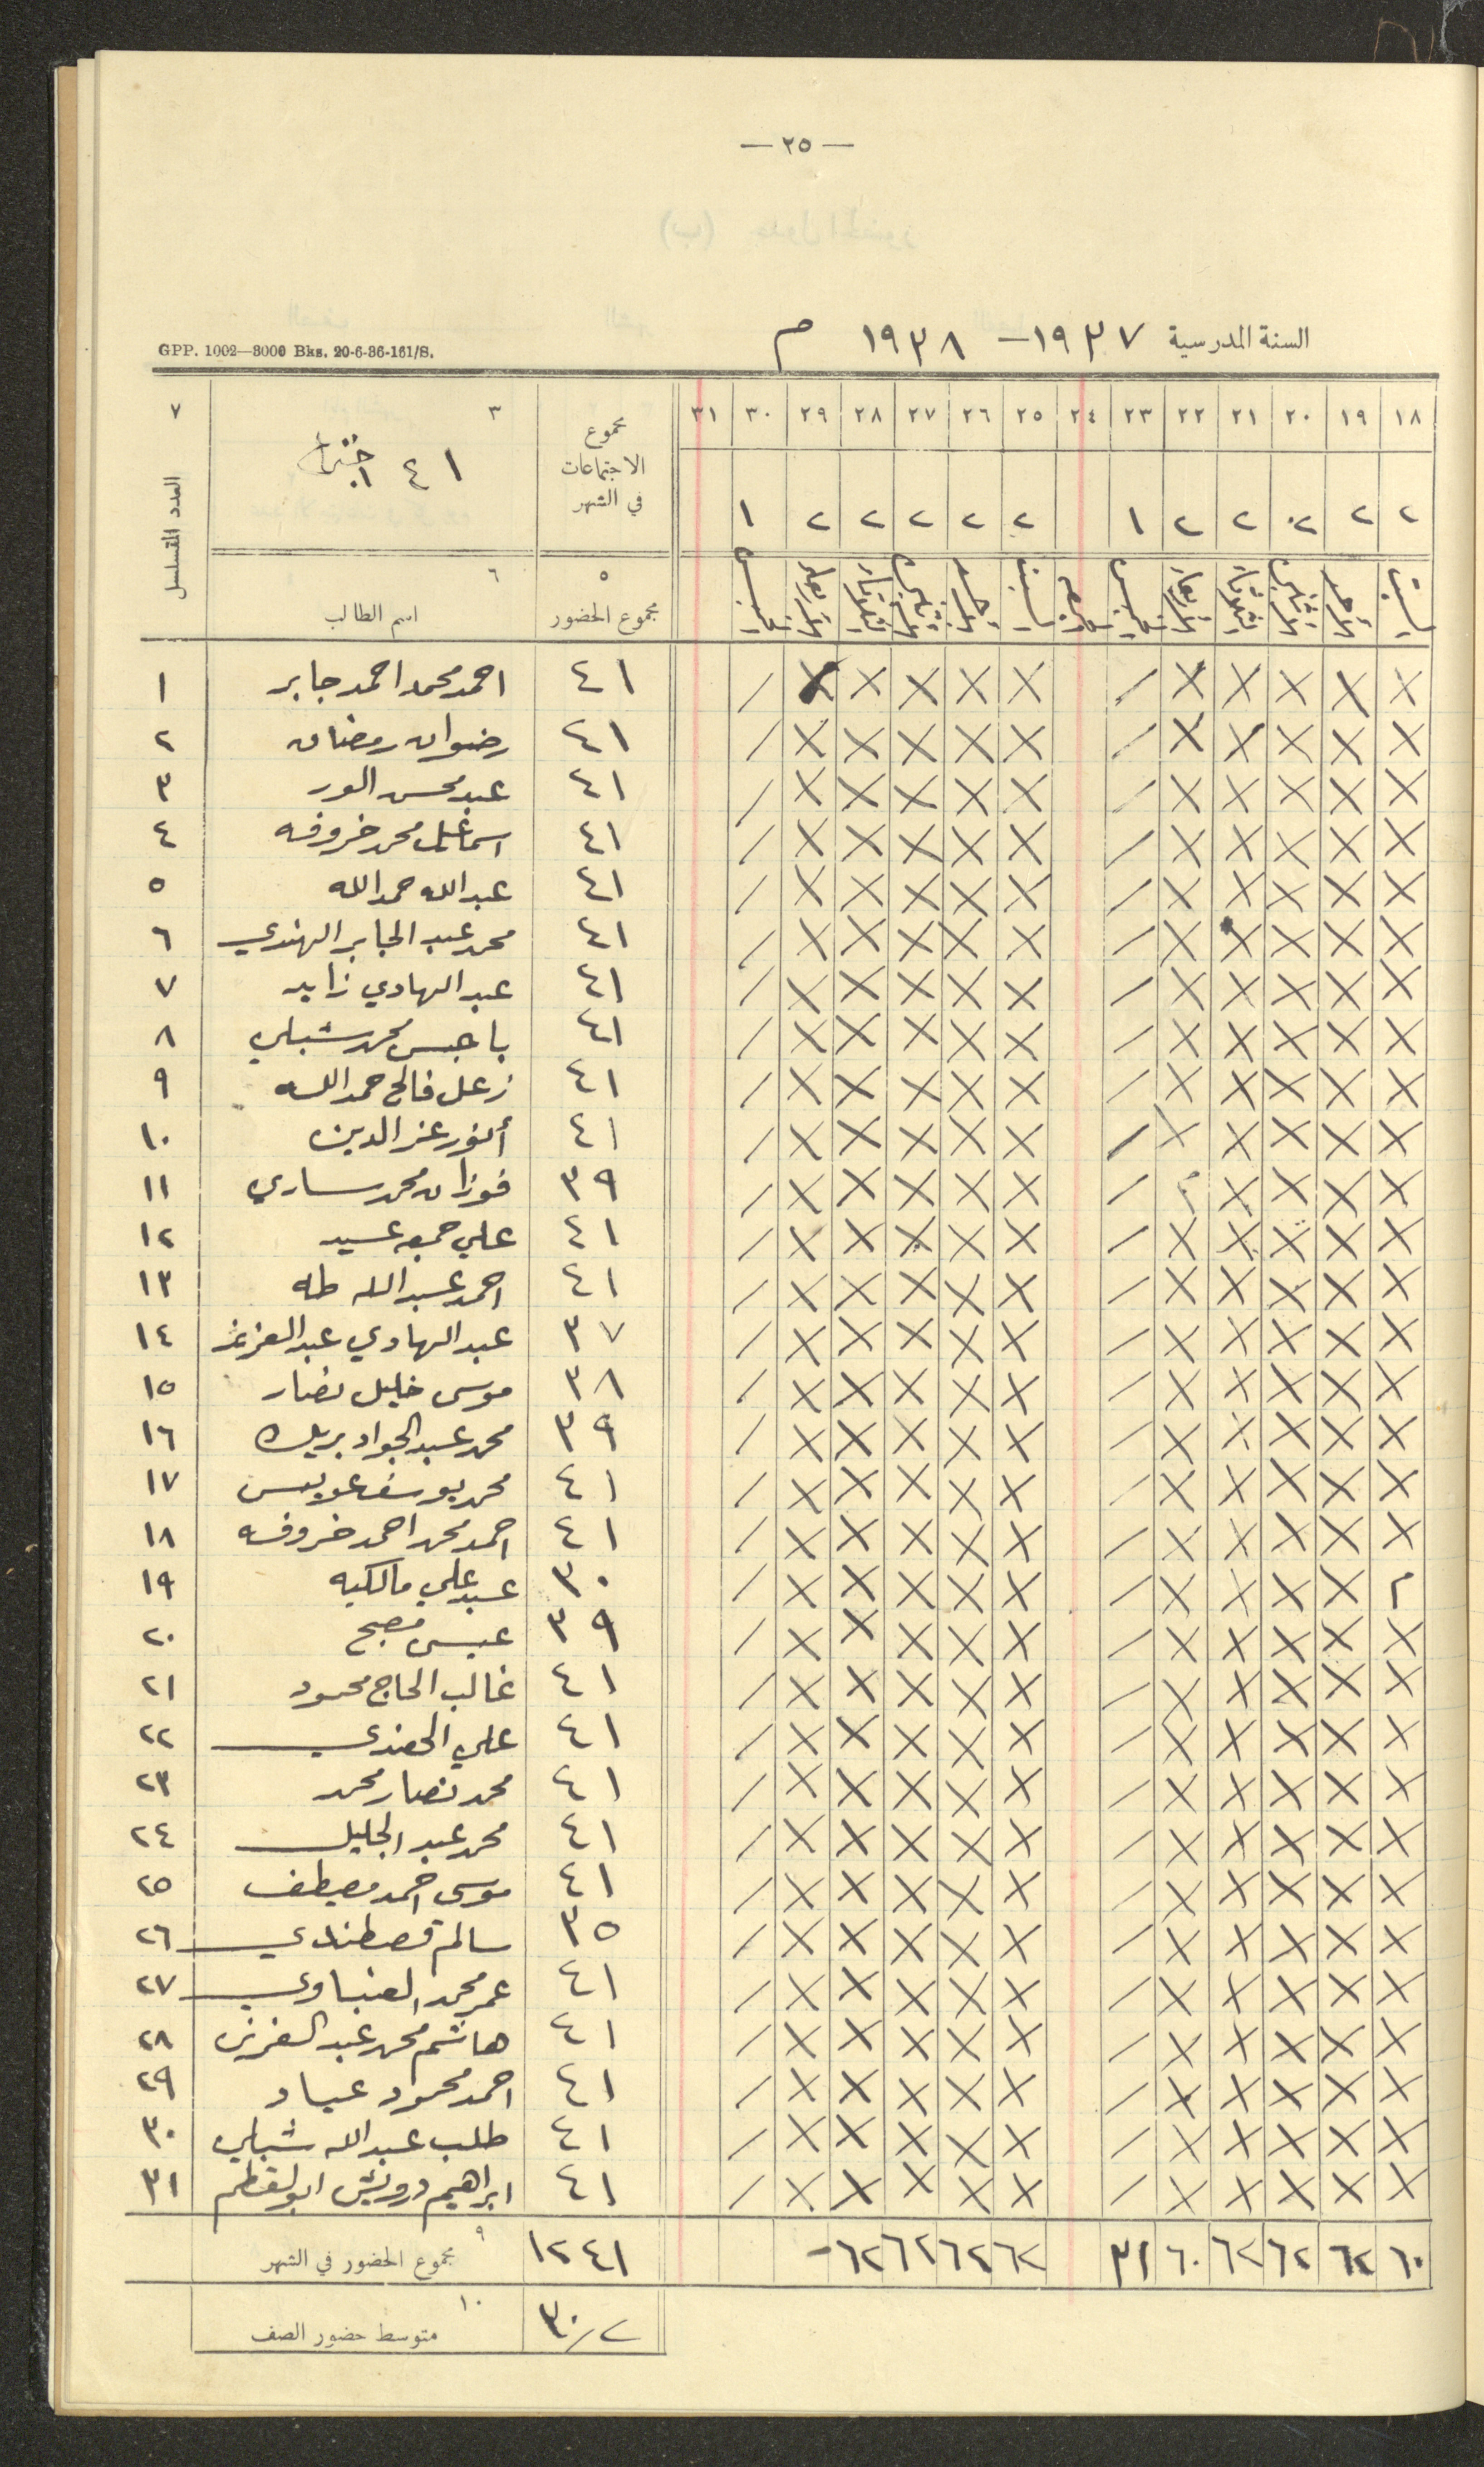 — ٢٥ —
السنة المدرسية ١٩٣٧ — ١٩٣٨ م
GPP. 1002—3000 Bks. 20-6-36-161/S.
١٨ ١٩ ٢٠ ٢١ ٢٢ ٢٣ ٢٤ ٢٥ ٢٦ ٢٧ ٢٨ ٢٩ ٣٠ ٣١ مجموع الاجتماعات في الشهر ٣ ٤١ ٧ العدد المتسلسل
٢ ٢ ٢ ٢ ٢ ١ ٢ ٢ ٢ ٢ ٢ ١
السبت الاحد الاثنين الثلاثاء الاربعاء الخميس الجمعة السبت الاحد الاثنين الثلاثاء الاربعاء الخميس ٥ مجموع الحضور ٦ اسم الطالب
X X X X X / X X X X X / ٤١ احمد محمد احمد جابر ١
X X X X X / X X X X X / ٤١ رضوان رمضان ٢
X X X X X / X X X X X / ٤١ عبد محسن الور ٣
X X X X X / X X X X X / ٤١ اسماعيل محمد خروفه ٤
X X X X X / X X X X X / ٤١ عبدالله حمدالله ٥
X X X X X / X X X X X / ٤١ محمد عبد الجابر الهندي ٦
X X X X X / X X X X X / ٤١ عبد الهادي زايد ٧
X X X X X / X X X X X / ٤١ باجس محمد شبلي ٨
X X X X X / X X X X X / ٤١ زعل فالح حمد الله ٩
X X X X X / X X X X X / ٤١ أنور عز الدين ١٠
X X X X م / X X X X X / ٣٩ فوزان محمد ساري ١١
X X X X X / X X X X X / ٤١ علي جمعه عسيد ١٢
X X X X X / X X X X X / ٤١ احمد عبدالله طه ١٣
X X X X X / X X X X X / ٣٧ عبد الهادي عبد العزيز ١٤
X X X X X / X X X X X / ٣٨ موسى خليل نصار ١٥
X X X X X / X X X X X / ٣٩ محمد عبد الجواد بريك ١٦
X X X X X / X X X X X / ٤١ محمد يوسف عويس ١٧
X X X X X / X X X X X / ٤١ احمد محمد احمد خروفه ١٨
م X X X X / X X X X X / ٣٠ عبد علي مالكيه ١٩
X X X X X / X X X X X / ٣٩ عيسى مصبح ٢٠
X X X X X / X X X X X / ٤١ غالب الحاج محمود ٢١
X X X X X / X X X X X / ٤١ علي ٢٢
X X X X X / X X X X X / ٤١ محمد نصار محمد ٢٣
X X X X X / X X X X X / ٤١ محمد عبد الجليل ٢٤
X X X X X / X X X X X / ٤١ موسى احمد مصطفى ٢٥
X X X X X / X X X X X / ٣٥ سالم قصطندي ٢٦
X X X X X / X X X X X / ٤١ عمر محمد ٢٧
X X X X X / X X X X X / ٤١ هاشم محمد عبد العزيز ٢٨
X X X X X / X X X X X / ٤١ احمد محمود عياد ٢٩
X X X X X / X X X X X / ٤١ طلب عبدالله شبلي ٣٠
X X X X X / X X X X X / ٤١ ابراهيم درويش ٣١
٦٠ ٦٢ ٦٢ ٦٢ ٦٠ ٣١ ٦٢ ٦٢ ٦٢ ٦٢ - ١٢٤١ مجموع الحضور في الشهر ٩
٣٠/٢ متوسط حضور الصف ١٠